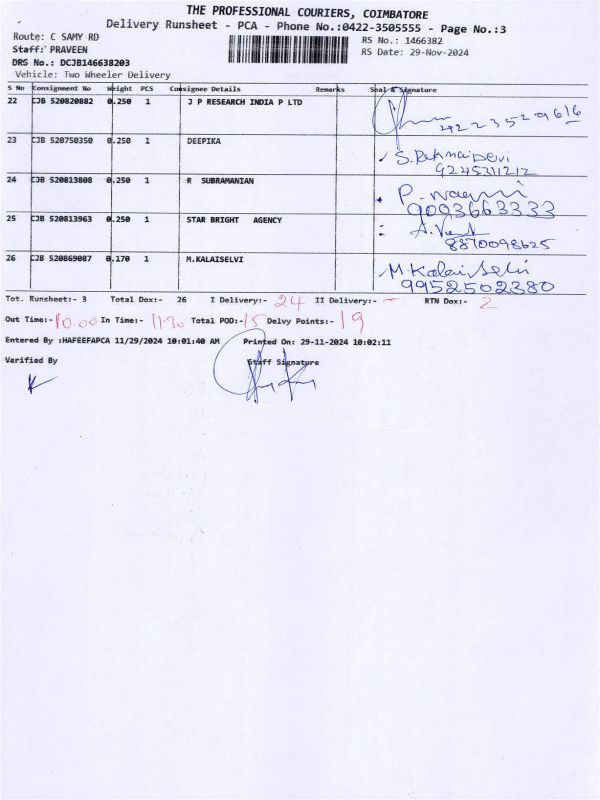 THE PROFESSIONAL COURIERS, COIMBATORE
Delivery Runsheet - PCA - Phone No.:0422-3505555 - Page No.:3
Route: C SAMY RD RS No.: 1466382
Staff: PRAVEEN RS Date: 29-Nov-2024
DRS No.: DCJB146638203
Vehicle: Two Wheeler Delivery
S No Consignment No Weight PCS Consignee Details Remarks Seal & Signature
22 CJB 520820882 0.250 1 J P RESEARCH INDIA P LTD
4223529616
23 CJB 520750350 0.250 1 DEEPIKA S.
9245311212
24 CJB 520813808 0.250 1 R SUBRAMANIAN P.
9003663333
25 CJB 520813963 0.250 1 STAR BRIGHT AGENCY A.
8870098625
26 CJB 520869087 0.170 1 M.KALAISELVI M.Kalaiselvi
9952502380
Tot. Runsheet:- 3 Total Dox:- 26 I Delivery:- 24 II Delivery:- - RTN Dox:- 2
Out Time:- 10.00 In Time:- 11.30 Total POD:- 15 Delvy Points:- 19
Entered By :HAFEEFAPCA 11/29/2024 10:01:40 AM Printed On: 29-11-2024 10:02:11
Verified By Staff Signature